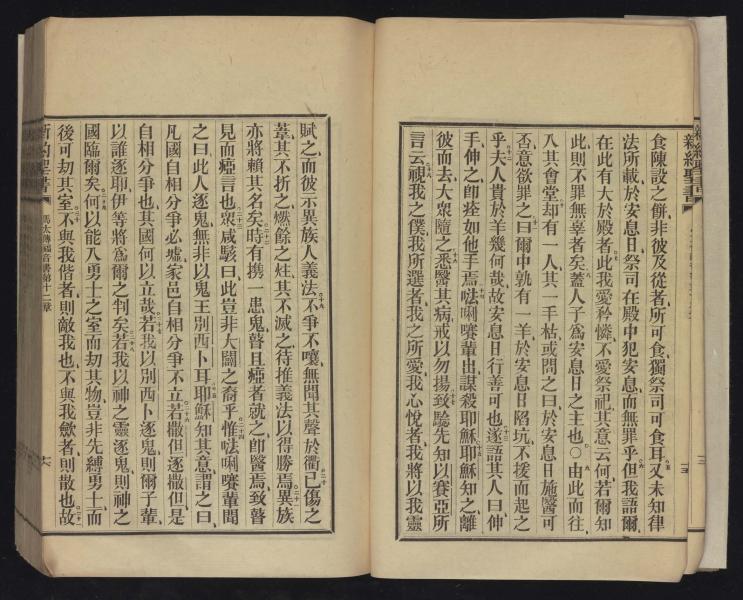 新約聖書
食陳設之餅、非彼及從者所可食、獨祭司可食耳、又未知律
法所載於安息日、祭司在殿中犯安息、而無罪乎、但我語爾、
在此有大於殿者、此我愛矜憐、不愛祭祀、其意云何、若爾知
此則不罪無辜者矣、蓋人子為安息日之主也○由此而往、
入其會堂、却有一人其一手枯、或問之曰、於安息日施醫可
否、意欲罪之、曰、爾中孰有一羊、於安息日陷坑、不援而起之
乎、夫人貴於羊幾何哉、故安息日行善可也、遂語其人曰、伸
手、伸之卽痊如他手焉、𠵽唎賽輩出、謀殺耶穌、耶穌知之、離
彼而去、大衆隨之、悉醫其病、戒以勿揚、致騐先知以賽亞所
言云、視我之僕、我所選者、我之所愛、我心悅者、我將以我靈
賦之、而彼示異族人義法、不爭不嚷、無聞其聲於衢、已傷之
葦、其不折之、燃餘之炷、其不滅之、待推義法以得勝焉、異族
亦將賴其名矣、時有携一患鬼瞽且瘂者就之、卽醫焉、致瞽
見而瘂言也、衆咸駭曰、此豈非大闢之裔乎、惟𠵽唎賽輩聞
之曰、此人逐鬼、無非以鬼王別西卜耳、耶穌知其意、謂之曰、
凡國自相分爭必墟、家邑自相分爭不立、若撒但逐撒但、是
自相分爭也、其國何以立哉、若我以別西卜逐鬼、則爾子輩
以誰逐耶、伊等將為爾之判矣、若我以神之靈逐鬼、則神之
國臨爾矣、何以能入勇士之室、而刧其物、豈非先縛勇士、而
後可刧其室、不與我偕者、則敵我也、不與我歛者、則散也、故
新約聖書 馬太傳福音書第十二章 六